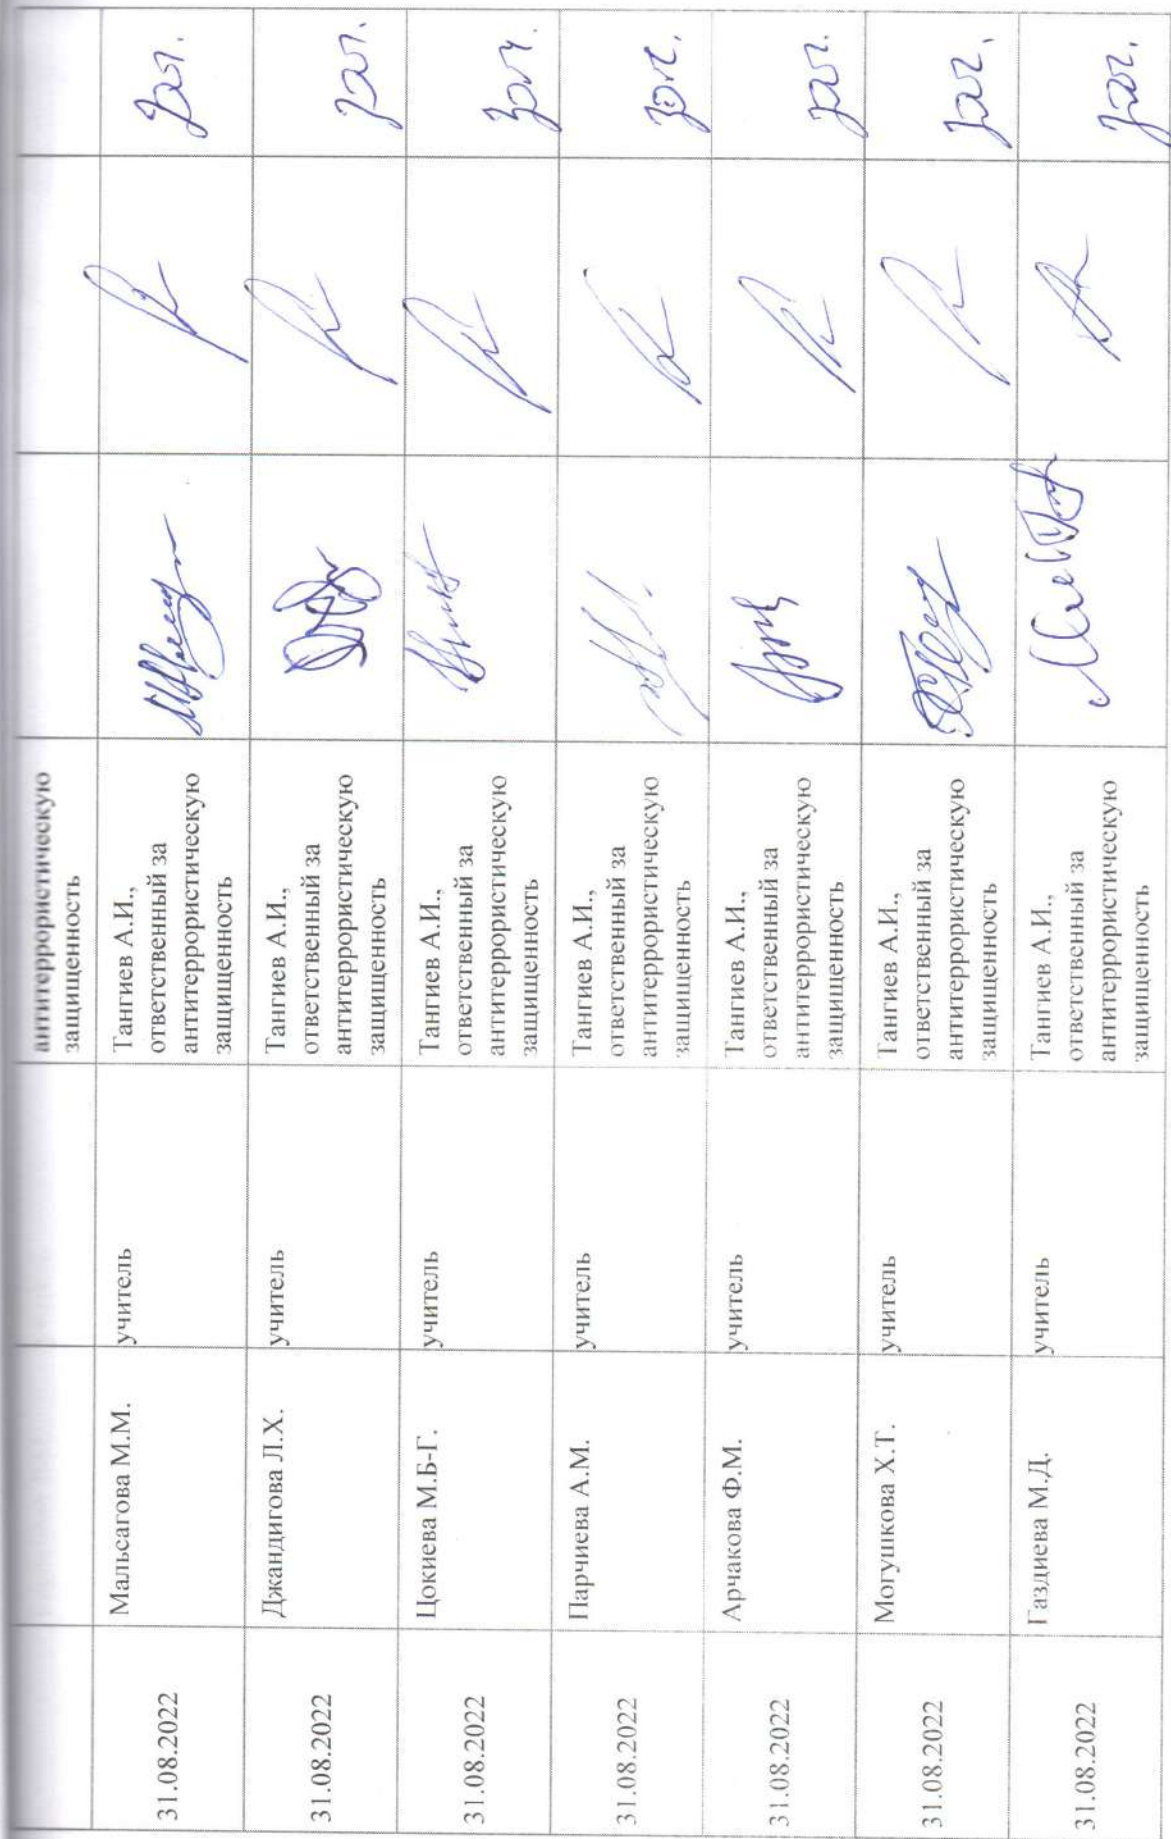 антитеррористическую
защищенность
31.08.2022
Мальсагова М.М.
учитель
Тангиев А.И.,
ответственный за
антитеррористическую
защищенность
зач.
31.08.2022
Джандигова Л.Х.
учитель
Тангиев А.И.,
ответственный за
антитеррористическую
защищенность
зач.
31.08.2022
Цокиева М.Б-Г.
учитель
Тангиев А.И.,
ответственный за
антитеррористическую
защищенность
зач.
31.08.2022
Парчиева А.М.
учитель
Тангиев А.И.,
ответственный за
антитеррористическую
защищенность
зач.
31.08.2022
Арчакова Ф.М.
учитель
Тангиев А.И.,
ответственный за
антитеррористическую
защищенность
зач.
31.08.2022
Могушкова Х.Т.
учитель
Тангиев А.И.,
ответственный за
антитеррористическую
защищенность
зач.
31.08.2022
Газдиева М.Д.
учитель
Тангиев А.И.,
ответственный за
антитеррористическую
защищенность
зач.